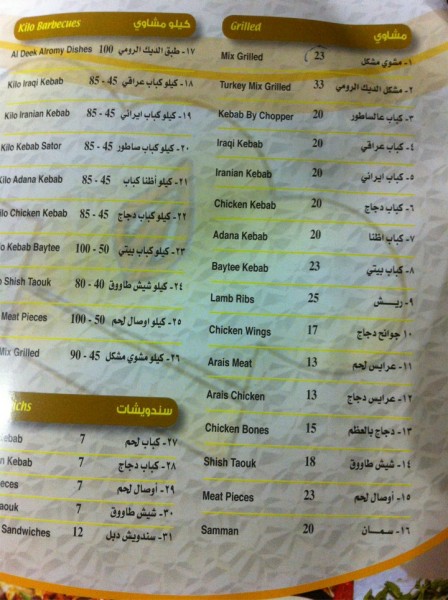 Kilo Barbecues كيلو مشاوي
Al Deek Alromy Dishes 100 ١٧- طبق الديك الرومي
Kilo Iraqi Kebab 85 - 45 ١٨- كيلو كباب عراقي
Kilo Iranian Kebab 85 - 45 ١٩- كيلو كباب ايراني
Kilo Kebab Sator 85 - 45 ٢٠- كيلو كباب صاطور
ilo Adana Kebab 85 - 45 ٢١- كيلو أظنا كباب
ilo Chicken Kebab 85 - 45 ٢٢- كيلو كباب دجاج
o Kebab Baytee 100 - 50 ٢٣- كيلو كباب بيتي
Shish Taouk 80 - 40 ٢٤- كيلو شيش طاووق
Meat Pieces 100 - 50 ٢٥- كيلو اوصال لحم
Mix Grilled 90 - 45 ٢٦- كيلو مشوي مشكل
ichs سندويشات
ebab 7 ٢٧- كباب لحم
n Kebab 7 ٢٨- كباب دجاج
eces 7 ٢٩- أوصال لحم
aouk 7 ٣٠- شيش طاووق
Sandwiches 12 ٣١- سندويش دبل
Grilled مشاوي
Mix Grilled 23 ١- مشوي مشكل
Turkey Mix Grilled 33 ٢- مشكل الديك الرومي
Kebab By Chopper 20 ٣- كباب عالساطور
Iraqi Kebab 20 ٤- كباب عراقي
Iranian Kebab 20 ٥- كباب ايراني
Chicken Kebab 20 ٦- كباب دجاج
Adana Kebab 20 ٧- كباب اظنا
Baytee Kebab 23 ٨- كباب بيتي
Lamb Ribs 25 ٩- ريش
Chicken Wings 17 ١٠ جوانح دجاج
Arais Meat 13 ١١- عرايس لحم
Arais Chicken 13 ١٢- عرايس دجاج
Chicken Bones 15 ١٣- دجاج بالعظم
Shish Taouk 18 ١٤- شيش طاووق
Meat Pieces 23 ١٥- أوصال لحم
Samman 20 ١٦- سمان